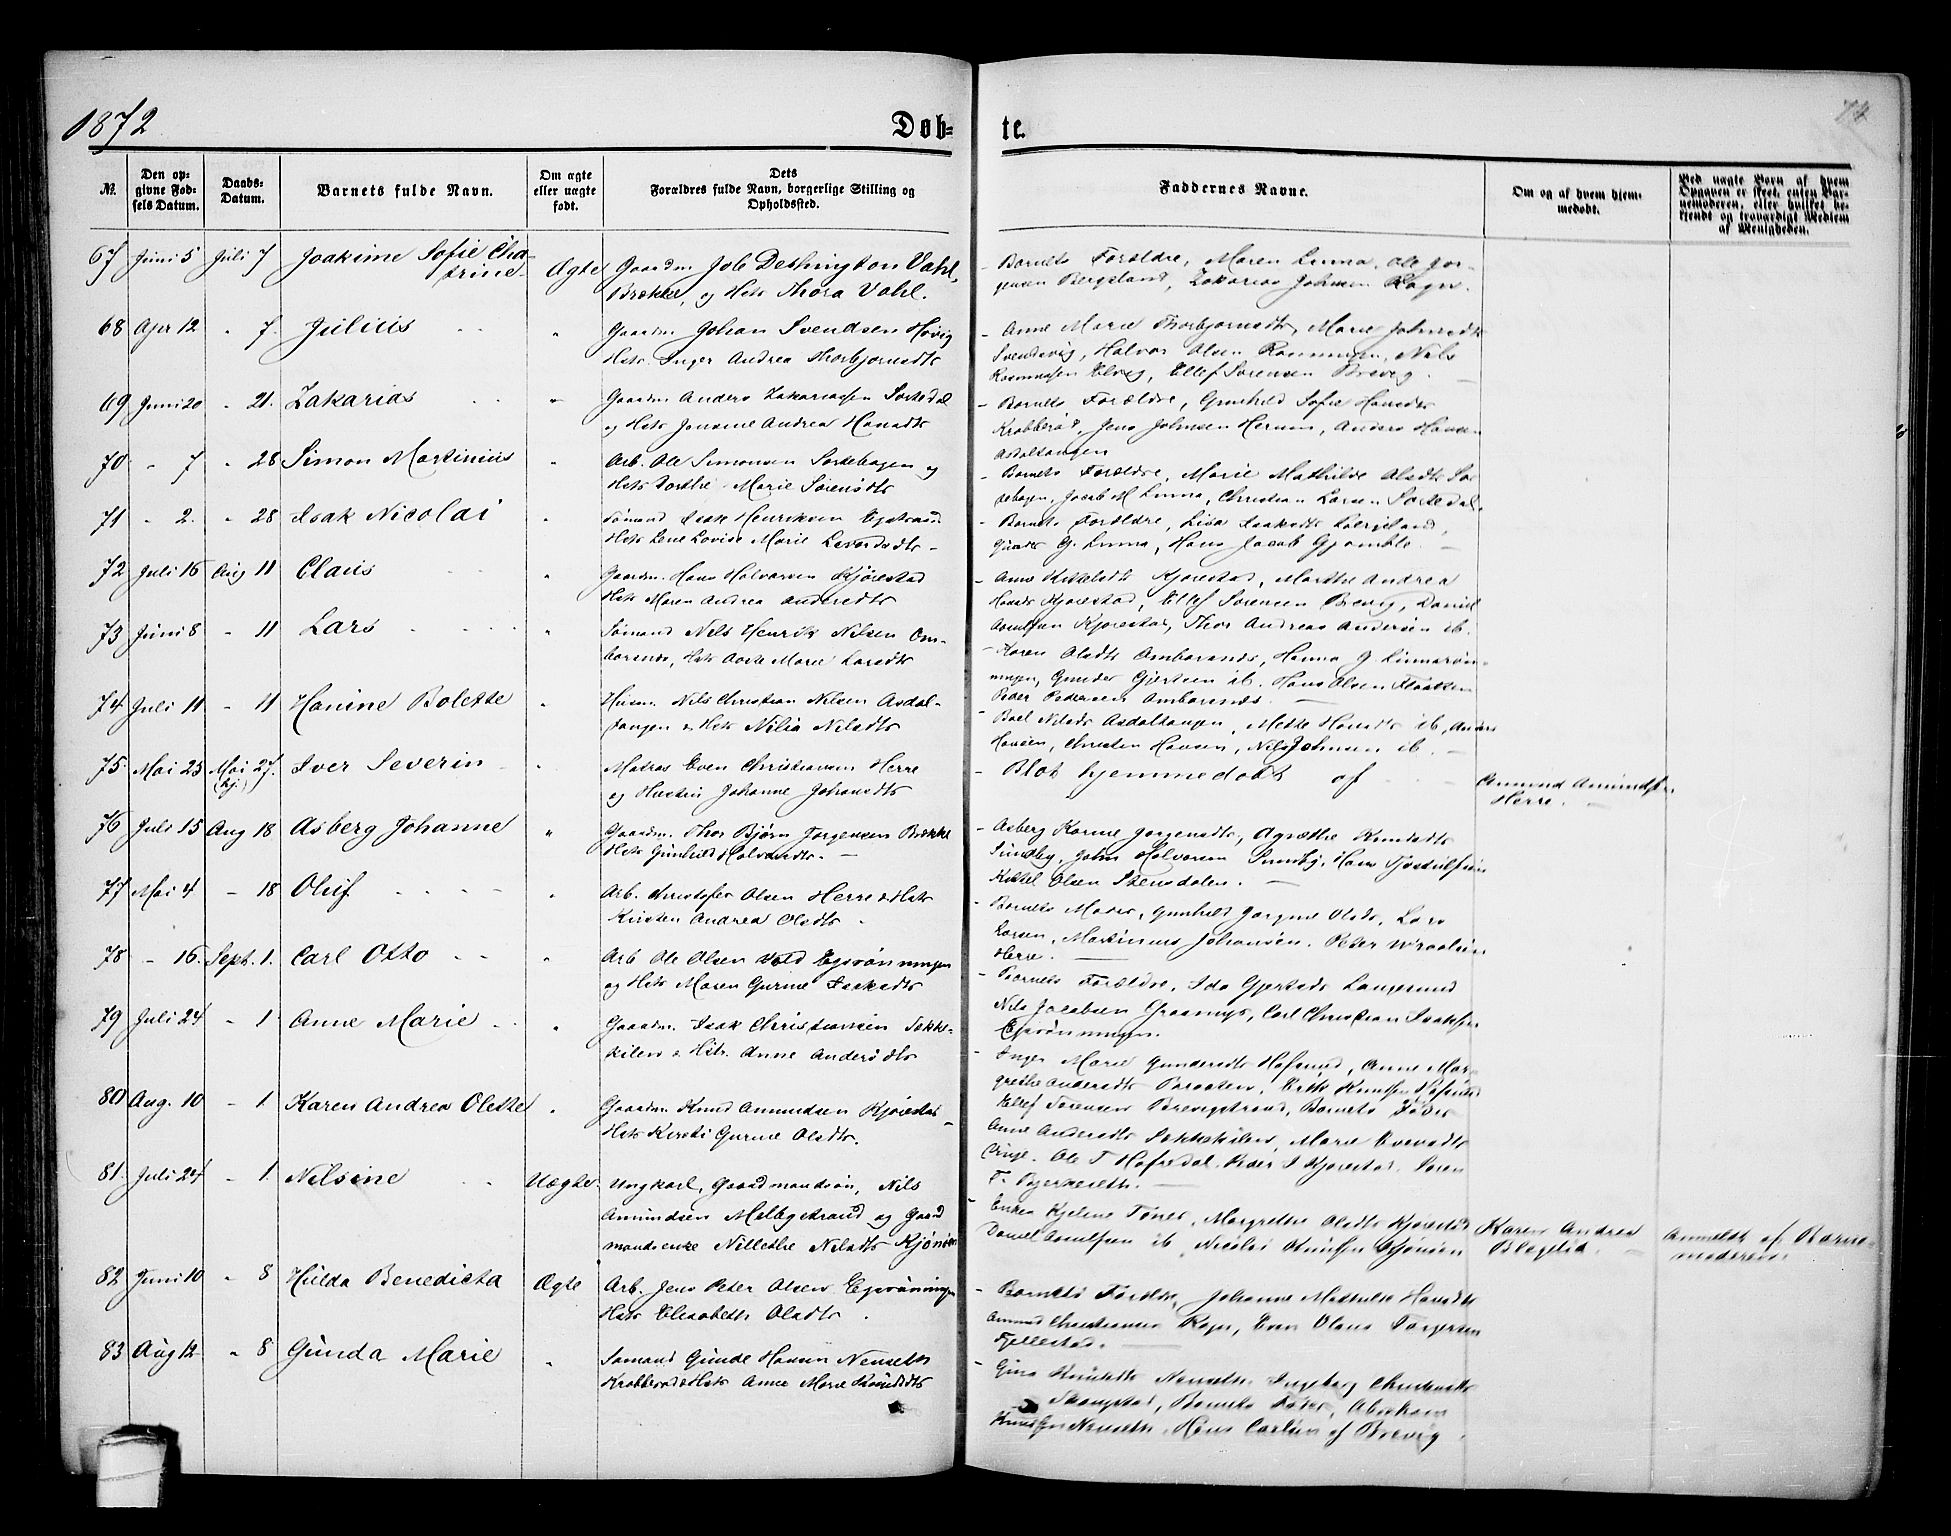 1872
Døb-
te.
№.
Den op-
givne Fød-
sels Datum.
Daabs-
Datum.
Barnets fulde Navn.
Om ægte
eller uægte
født.
Dets
Forældres fulde Navn, borgerlige Stilling og
Opholdssted.
Faddernes Navne.
Om og af hvem hjem-
medøbt.
Ved uægte Børn af hvem
Opgaven er skeet, enten Bar-
nemoderen, eller hvilket be-
kjendt og troværdigt Medlem
af Menigheden.
67 Juni 5 Juli 7 Joakime Sofie Cha-
trine Ægte Gaardm. Job Dethington Vahl,
Brække, og Hstr Thora Vahl.
- Barnets Forældre, Maren Linna, Ole Jør-
gensen Bergsland, Zakarias Johnsen Rogn.
68 Apr 12 " 7. Julius " Gaardm. Johan Svendsen Høvig
Hstr. Inger Andrea Thorbjørnsdtr
- Anne Marie Thorbjørnsdtr, Marie Johnsdtr
Svendsvig, Halvor Olsen Rasmussen, Nils
Rasmussen Elvig, Ellef Sørensen Brevig.
69 Juni 20 " 21. Zakarias " Gaardm Anders Zakariassen Sortedal
og Hstr Jensine Andrea Hansdtr
- Barnets Forældre, Gunhild Sofie Hansdtr
Krabberød, Jens Johnsen Herum, Anders Hansen
Asdaltangen
70 " 7 " 28 Simon Martinius " Arb. Ole Simonsen Sortebogen og
Hstr Dorthe Marie Sørensdtr
- Barnets Forældre, Marie Mathilde Olsdtr Sor-
tebogen, Jacob M Linna, Christian Larsen Sortedal.
71 " 2. " 28 Isak Nicolai " Sømand Isak Henriksen
Hstr Lene Lovise Marie
- Barnets Forældre, Lisa Isaksdtr
G. Linna, Hans Jacob Gjømble.
72 Juli 16 Aug 11 Claus " Gaardm. Hans Halvorsen Kjørestad
Hstr Maren Andrea Andersdtr
- Anne Kittelsdtr Kjørestad, Marthe Andrea
Hansdtr Kjørestad, Ellef Sørensen Brevig, Daniel
Kjørestad, Thor Andreas Andersen ib.
73 Juni 8 " 11 Lars " Sømand Nils Henrik Nilsen Om-
borsnes, Hstr Marie Larsdtr
- Karen Olsdtr Omborsnes, Hanna G. Linnarøn-
ningen, Gunder Gjertsen ib. Hans Olsen
Peder Pedersen Omborsnes.
74 Juli 11 " 11 Hanine Bolette " Husm. Nils Christian Nilsen Asdal-
tangen & Hstr Nilia Nilsdtr
- Boel Nilsdtr Asdaltangen, Mette Hansdtr ib, Anders
Hansen, Christen Hansen, Nils Johnsen ib.
75 Mai 25 Mai 27. (hj.) Iver Severin " Matros Even Christiansen Herre
og Hustru Johanne Johansdtr
- Blot hjemmedøbt af
Amund Amunds.
Herre.
76 Juli 15 Aug 18 Asberg Johanne " Gaardm. Thor Bjørn Jørgensen Brække
Hstr Gunhild Halvorsdtr.
- Asberg Karine Jørgensdtr, Agnethe Knudsdtr
Sundby, John Halvorsen Sundby, Hans
Kittel Olsen Stensdalen.
77 Mai 4 " 18 Oluf " Arb. Christofer Olsen Herre & Hstr
Kirsten Andrea Olsdtr.
- Barnets Moder, Gunhild Jørgine Olsdtr, Lars
Larsen, Martinius Johansen. Peter Wraalsen
Herre.
78 " 16. Sept. 1. Carl Otto " Arb Ole Olsen
og Hstr Maren Gurine Isaksdtr
- Barnets Forældre, Ida Gjertsdtr Langesund
Nils Jacobsen, Carl Christian Isaksen
79 Juli 24 " 1 Anne Marie " Gaardm. Isak Christiansen Søkke-
kilen & Hstr. Anne Andersdtr
- Inger Marie Gundersdtr Hafsund, Anne Mar-
grethe Andersdtr, Erik Knudsen Hafsund
Ellef Sørensen Brevigstrand, Barnets Fader
80 Aug. 10 " 1 Karen Andrea Olette " Gaardm Knud Amundsen Kjørestad
Hstr Kirsti Gurine Olsdtr.
Anne Andersdtr Søkkekilen, Marie Evensdtr
Vinje. Ole T Hafredal. Peder I Kjørestad. Søren
F.
81. Juli 24 " 1. Nilsine Uægte. Ungkarl, Gaardmandssøn, Nils
Amundsen Melbystrand og Gaard
mandsenke Nillethe Nilsdtr Kjønøen
- Enken Kjeline, Margrethe Olsdtr Kjørestad
Daniel ib, Nicolai Knudsen Kjønøen
Karen Andrea
Anmeldt af Barne-
moderen.
82 Juni 10 " 8 Hulda Benedicta Ægte Arb. Jens Peter Olsen
Hstr Elisabeth Olsdtr.
- Barnets Forældre, Johanne Mathilde Hansdtr
Amund Christiansen Rogn, Even Olaus Torgersen
Fjellestad.
83 Aug 12 " 8 Gunda Marie " Sømand Gunde Hansen Nenseth
Krabberød & Hstr Anne Marie Knudsdtr
- Gina Knudsdtr Nenseth, Ingeborg Christensdtr
Skougstad, Barnets Fader, Abraham
Knudsen Nenseth, Hans Carlsen af Brevig.